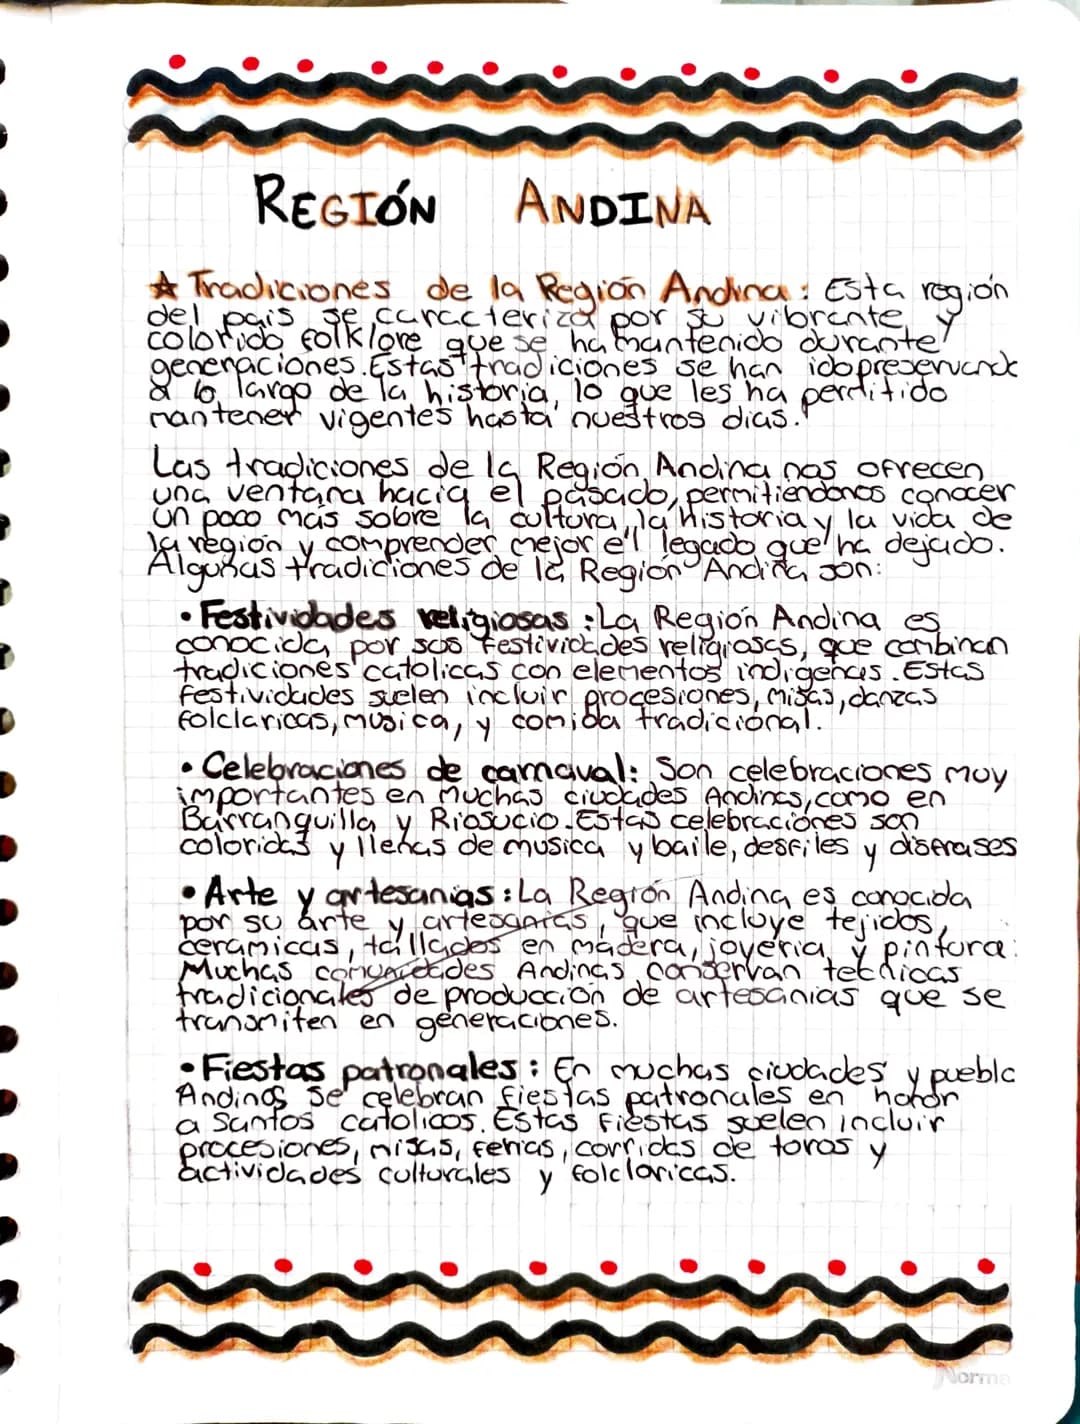 REGIÓN ANDINA
☆ Tradiciones de la Región Andina: Esta región
del pais se caracteriza por su vibrante y
colorido folklore que se ha mantenido durante
generaciones. Estas tradiciones se han ido preservando
a lo largo de la historia, lo que les ha perditido
mantener vigentes hasta nuestros dias.
Las tradiciones de la Región Andina nos ofrecen
una ventana hacia el pasado, permitiendonos conocer
un poco más sobre la cultura, la historia y la vida de
la región y comprender mejor el legado que ha dejado.
Algunas tradiciones de la Región Andina son:
• Festividades religiosas: La Región Andina es
conocida por sus festividades religiosas, que combinan
tradiciones catolicas con elementos indigenas. Estas
festividades suelen incluir procesiones, misas, danzas
folclaricas, musica, y comida tradicional.
• Celebraciones de carnaval: Son celebraciones muy
importantes en muchas ciudades Andinas, como en
Barranquilla y Riosucio. Estas celebraciones son
coloridas y llenas de musica y baile, desfiles y disfrases
• Arte y artesanias: La Región Andina es conocida
por su arte y artesanias, que incluye tejidos,
ceramicas, tallados en madera, joyeria, y pintura.
Muchas comunidades Andinas conservan tecnicas
tradicionales de producción de artesanias que se
transmiten en generaciones.
• Fiestas patronales: En muchas ciudades y pueblo
Andinos se celebran fiestas patronales en honor
a Santos catolicos. Estas fiestas suelen incluir
procesiones, misas, ferias, corridas de toros y
actividades culturales y folcloricas.
Norma